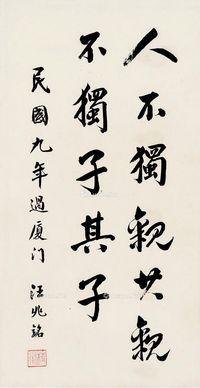 人不獨親其親
不獨子其子
民國九年過厦门
汪兆銘